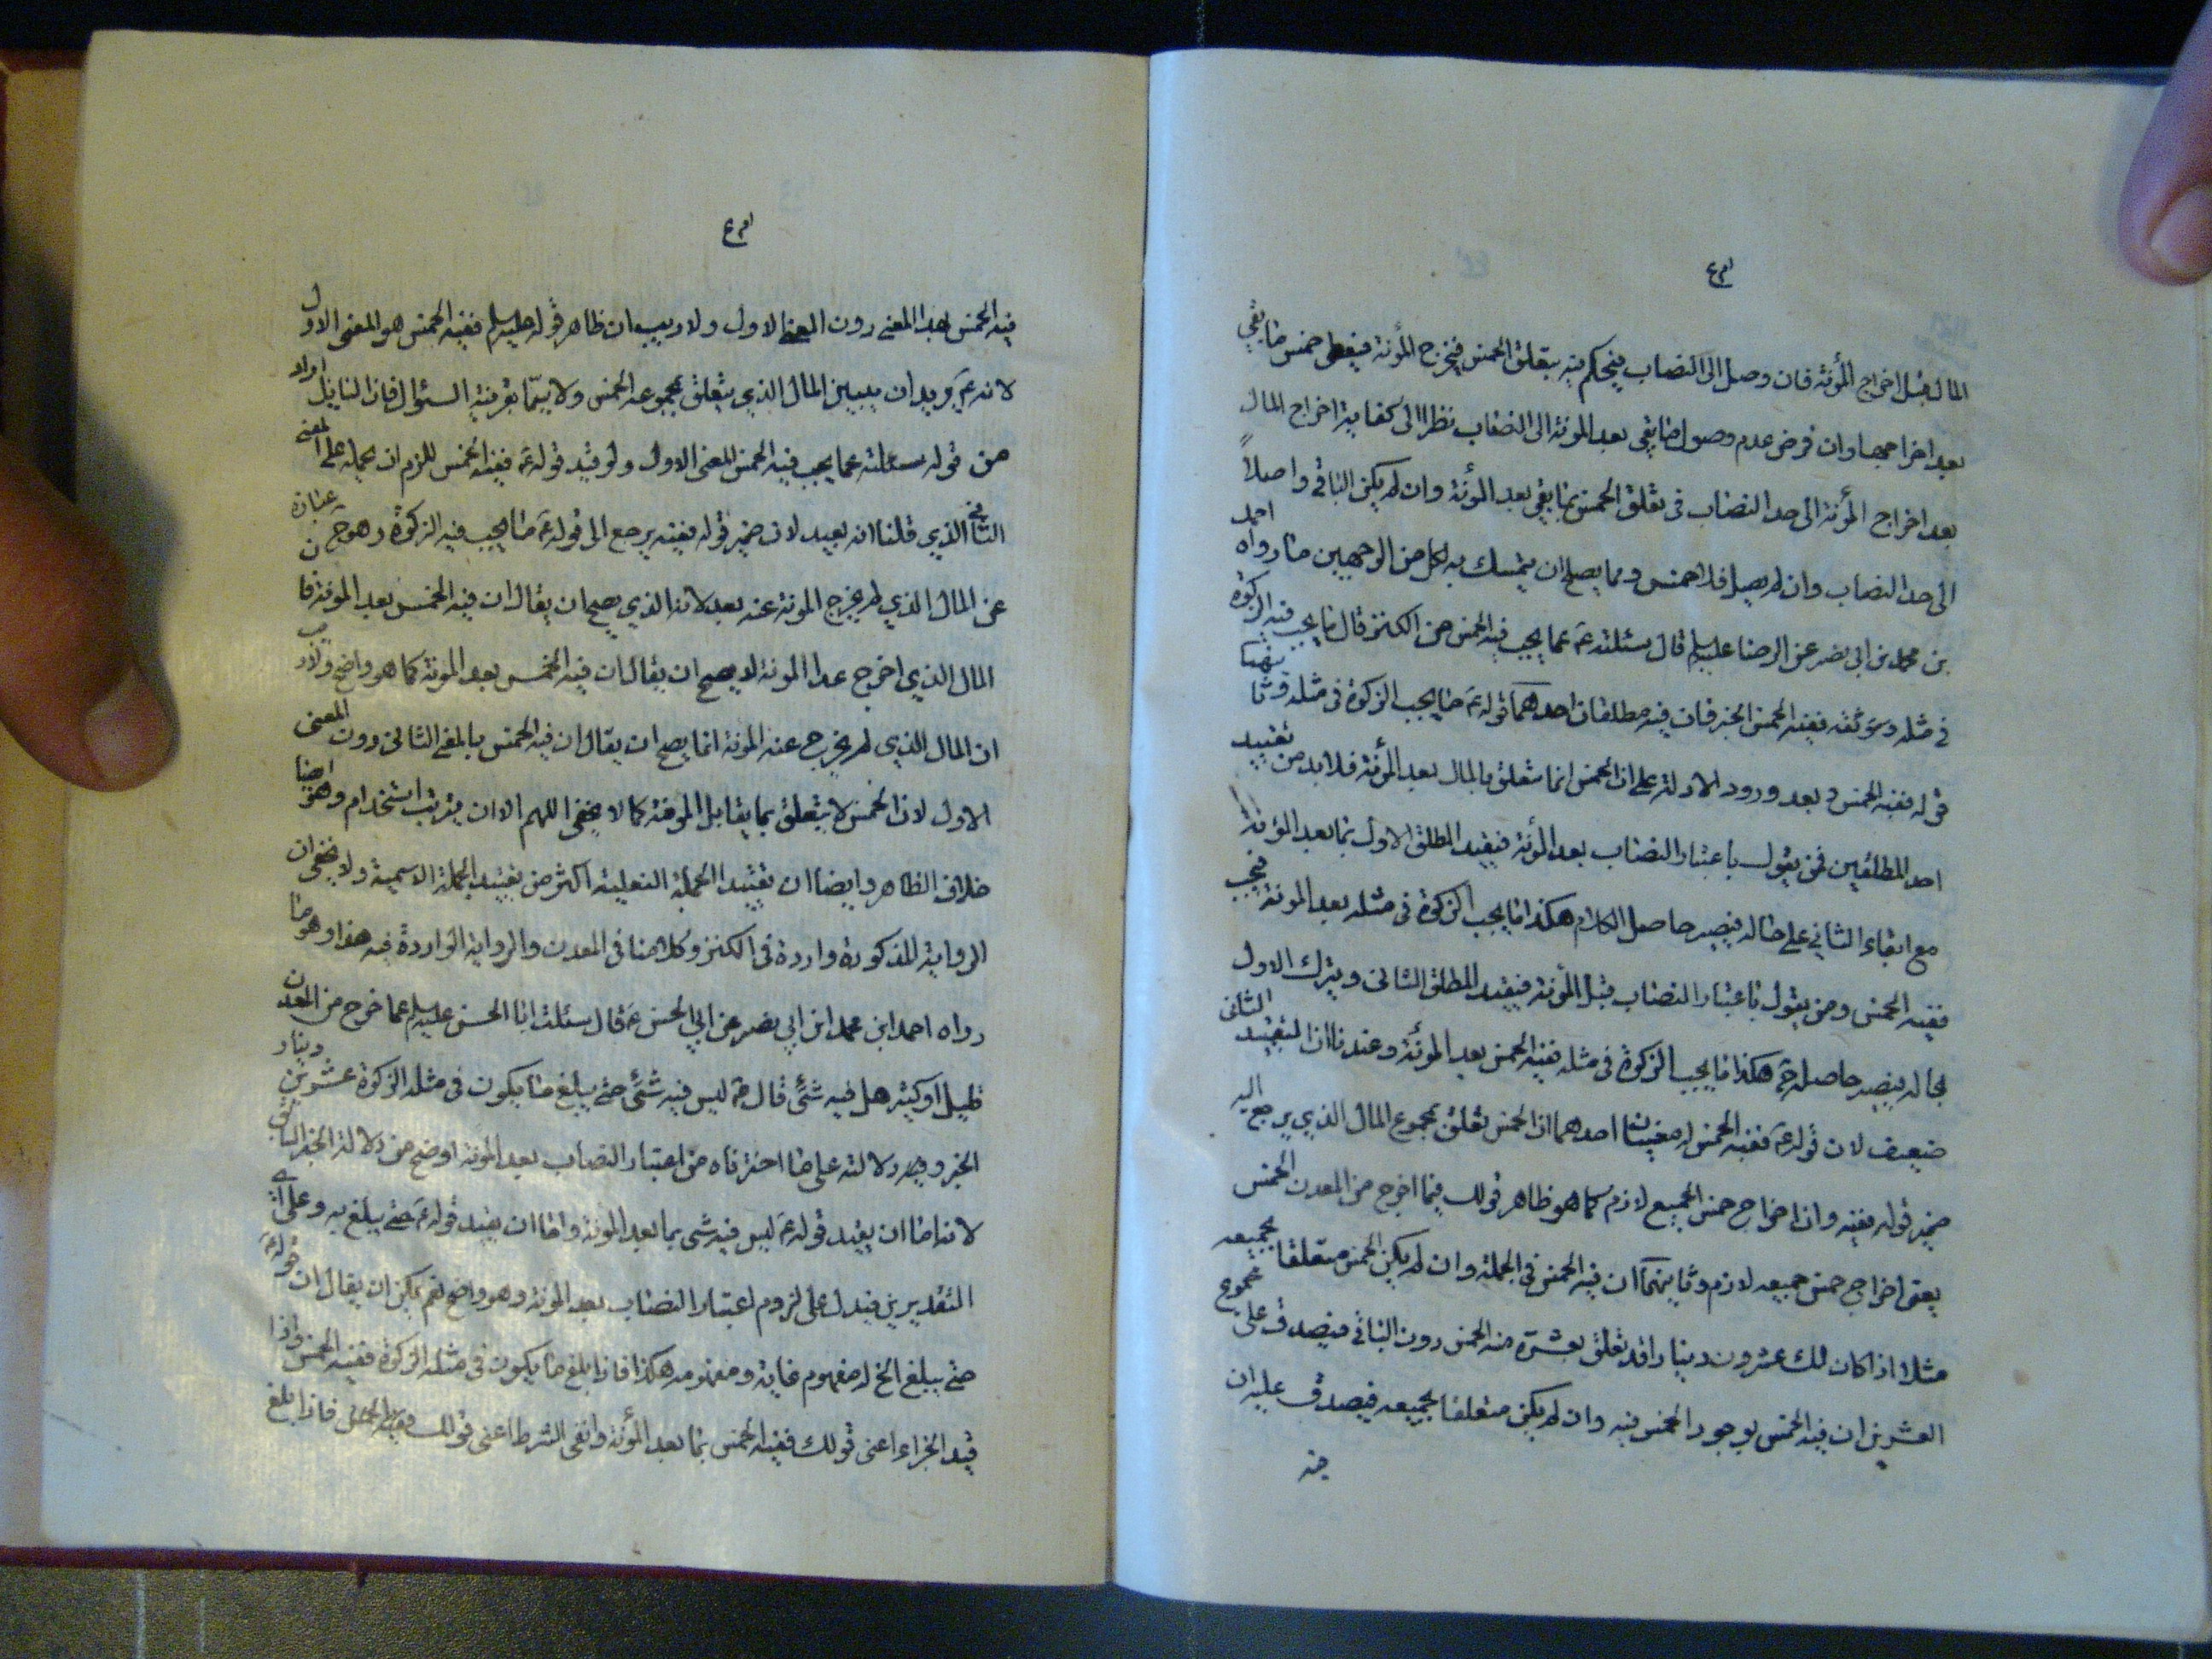 المال قبل اخراج المؤنة فان وصل الى النصاب فيحكم فيه بتعلق الخمس فيخرج المؤنة فيعطى خمس ما بقي
بعد اخراجها وان فرض عدم وصول ما بقى بعد المؤنة الى النصاب نظرا الى كفاية اخراج المال
بعد اخراج المؤنة الى حد النصاب فى تعلق الخمس بما بقي بعد المؤنة وان لم يكن الباقي واصلاً
الى حد النصاب وان لم يصل فلا خمس ومما يصلح ان يتمسك به لكل من الوجهين ما رواه احمد
بن محمد بن ابى نصر عن الرضا عليه السلم قال سئلته عما يجب فيه الخمس من الكنز قال ما يجب فيه الزكوة
فى مثله ففيه الخمس الخبر فان فيه مطلقان احدهما قوله ع ما يجب الزكوة فى مثله وثانيهما
قوله ففيه الخمس وبعد ورود الادلة على ان الخمس انما يتعلق بالمال بعد المؤنة فلا بد من تقييد
احد المطلقين فمن يقول باعتبار النصاب بعد المؤنة فيقيد المطلق الاول بما بعد المؤنة
مع ابقاء الثاني على حاله فيصير حاصل الكلام هكذا ما يجب الزكوة فى مثله بعد المؤنة فيجب
ففيه الخمس ومن يقول باعتبار النصاب قبل المؤنة فيقيد المطلق الثانى ويترك الاول
بحاله فيصير حاصله هكذا ما يجب الزكوة فى مثله ففيه الخمس بعد المؤنة وعندنا ان التقييد الثانى
ضعيف لان قوله ع ففيه الخمس له معنيان احدهما ان الخمس تعلق بمجموع المال الذي يرجع اليه
ضمير قوله ففيه وان اخراج خمس الجميع لازم كما هو ظاهر قولك فيما اخرج من المعدن الخمس
يعنى اخراج خمس جميعه لازم وثانيهما ان فيه الخمس فى الجملة وان لم يكن الخمس متعلقا بجميعه
مثلا اذا كان لك عشرون دينارا قد تعلق بعشرة منه الخمس دون الباقى فيصدق على مجموع
العشرين ان فيه الخمس لوجود الخمس فيه وان لم يكن متعلقا بجميعه فيصدق عليه ان
فيه
فيه الخمس بهذا المعنى دون المعنى الاول ولا ريب ان ظاهر قوله عليه السلم ففيه الخمس هو المعنى الاول
لانه ع يريد ان يبين المال الذي يتعلق بمجموعه الخمس ولا سيّما بقرينة السئوال فان السايل اراد
من قوله سئلته عما يجب فيه الخمس المعنى الاول ولو قيد قوله ع ففيه الخمس للزم ان يحمله على المعنى
الثانى الذي قلنا انه بعيد لان ضمير قوله ففيه يرجع الى قوله ع ما يجب فيه الزكوة وهو ح عبارة
عن المال الذي لم يخرج المؤنة عنه بعد لانه الذي يصح ان يقال ان فيه الخمس بعد المؤنة فان
المال الذي اخرج عنه المؤنة لا يصح ان يقال ان فيه الخمس بعد المؤنة كما هو واضح ولا ريب
ان المال الذي لم يخرج عنه المؤنة انما يصح ان يقال ان فيه الخمس بالمعنى الثانى دون المعنى
الاول لان الخمس لا يتعلق بما يقابل المؤنة كما لا يخفى اللهم الا ان يرتكب استخدام وهو ايضا
خلاف الظاهر وايضا ان تقييد الجملة الفعلية اكثر من تقييد الجملة الاسمية ولا يخفى ان
الرواية المذكورة واردة فى الكنز وكلامنا فى المعدن والرواية الواردة فيه هذا وهو ما
رواه احمد ابن محمد ابن ابي نصر عن ابي الحسن ع قال سئلت ابا الحسن عليه السلم عما خرج من المعدن
قليل او كثير هل فيه شئ قال ع ليس فيه شئ حتى يبلغ ما يكون فى مثله الزكوة عشرين دينار
الخبر ووجه دلالته على ما اخترناه من اعتبار النصاب بعد المؤنة اوضح من دلالة الخبر السابق
لانه اما ان يقيد قوله ع ليس فيه شى بما بعد المؤنة واما ان يقيد قوله ع حتى يبلغ به وعلى
التقديرين فيدل على لزوم اعتبار النصاب بعد المؤنة وهو واضح نعم يمكن ان يقال ان قوله ع
حتى يبلغ الخ له مفهوم غاية ومفهومه هكذا فاذا بلغ ما يكون فى مثله الزكوة ففيه الخمس واذا
قيد الجزاء اعنى قولك ففيه الخمس بما بعد المؤنة وابقى الشرط اعنى قولك فاذا بلغ